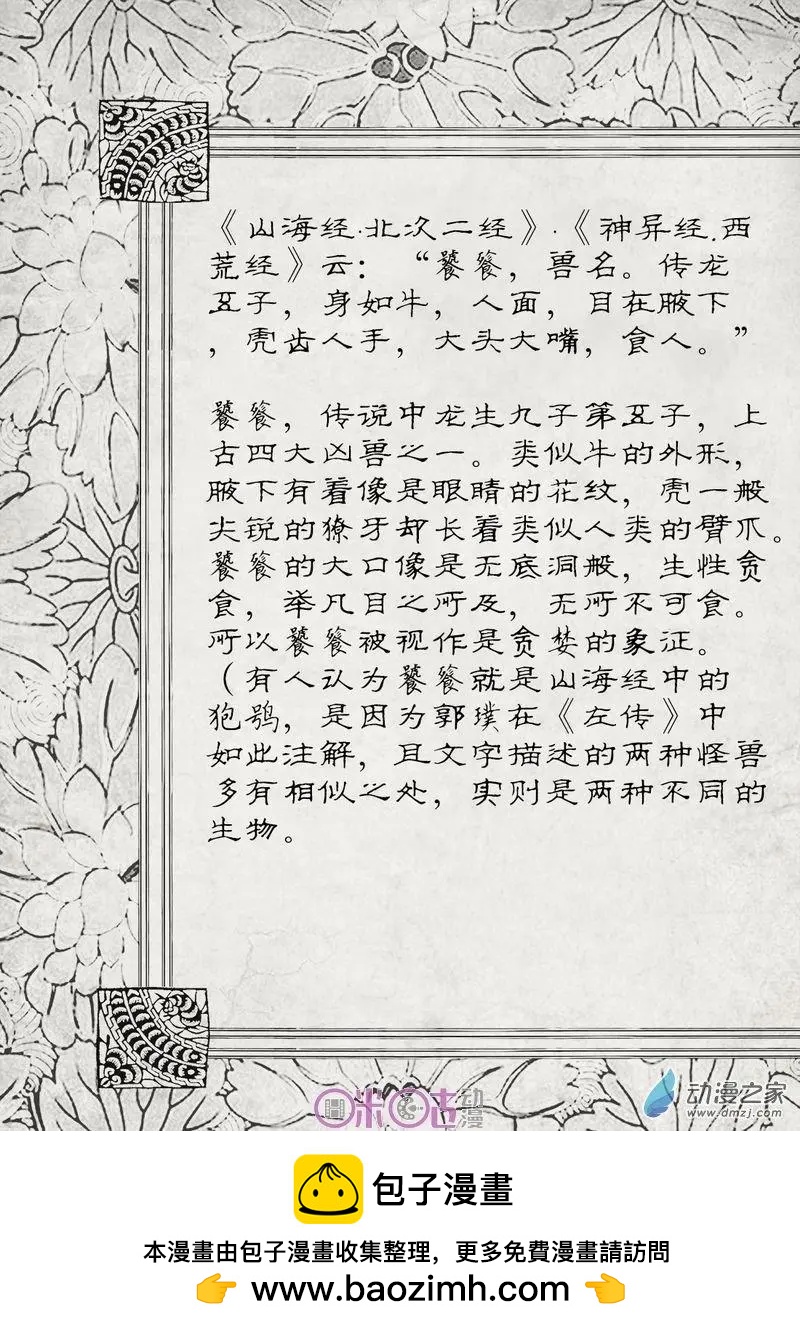 《山海经·北次二经》·《神异经.西
荒经》云：“饕餮，兽名。传龙
五子，身如牛，人面，目在腋下
，虎齿人手，大头大嘴，食人。”
饕餮，传说中龙生九子第五子，上
古四大凶兽之一。类似牛的外形，
腋下有着像是眼睛的花纹，虎一般
尖锐的獠牙却长着类似人类的臂爪。
饕餮的大口像是无底洞般，生性贪
食，举凡目之所及，无所不可食。
所以饕餮被视作是贪婪的象征。
（有人认为饕餮就是山海经中的
狍鸮，是因为郭璞在《左传》中
如此注解，且文字描述的两种怪兽
多有相似之处，实则是两种不同的
生物。
咪咕动漫
动漫之家
www.dmzj.com
包子漫畫
本漫畫由包子漫畫收集整理，更多免費漫畫請訪問
👉 www.baozimh.com 👈